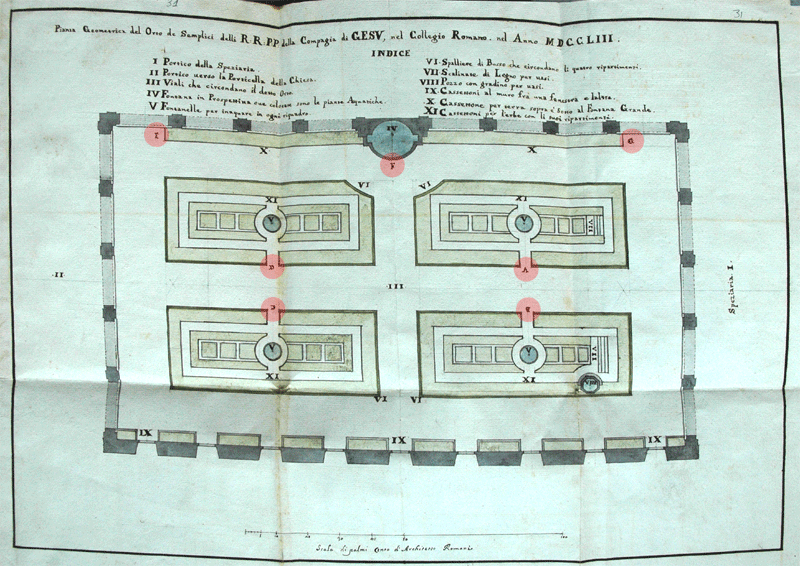 31
31
Pianta Geometrica del Orto de Semplici delli R.R.P.P. della Compagia di GESV, nel Collegio Romano. nel Anno MDCCLIII.
INDICE
I Portico della Speziaria.
II Portico verso la Porticella della Chiesa.
III Viali che circondano il detto Orto.
IV Fontana in Prospettiva ove collocan sono le piante Aquatiche.
V Fontanelle per inaquare in ogni riquadro
VI Spalliere di Busso che circondano li quatro ripartimenti.
VII Scalinate di Legno per vasi.
VIII Pozzo con gradino per vasi.
IX Cassettoni al muro frà una fenestra e l'altra.
X Cassettone per serra sopra e sotto al Fontana Grande.
XI Cassettoni per l'erbe con li suoi ripartimenti.
IV
X
X
VI
VI
XI
XI
V
V
VII
II
III
Speziaria I.
V
V
VII
XI
XI
VIII
VI
VI
IX
IX
IX
Scala di palmi Cento d'Architetto Romani